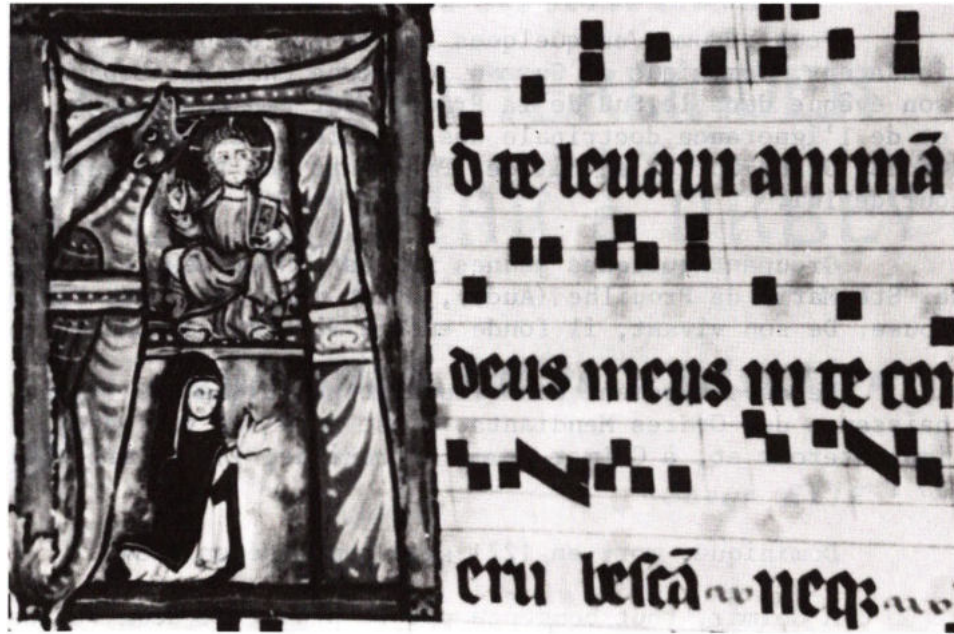 A
d te leuaui animā
deus meus in te con
eru bescā neq: